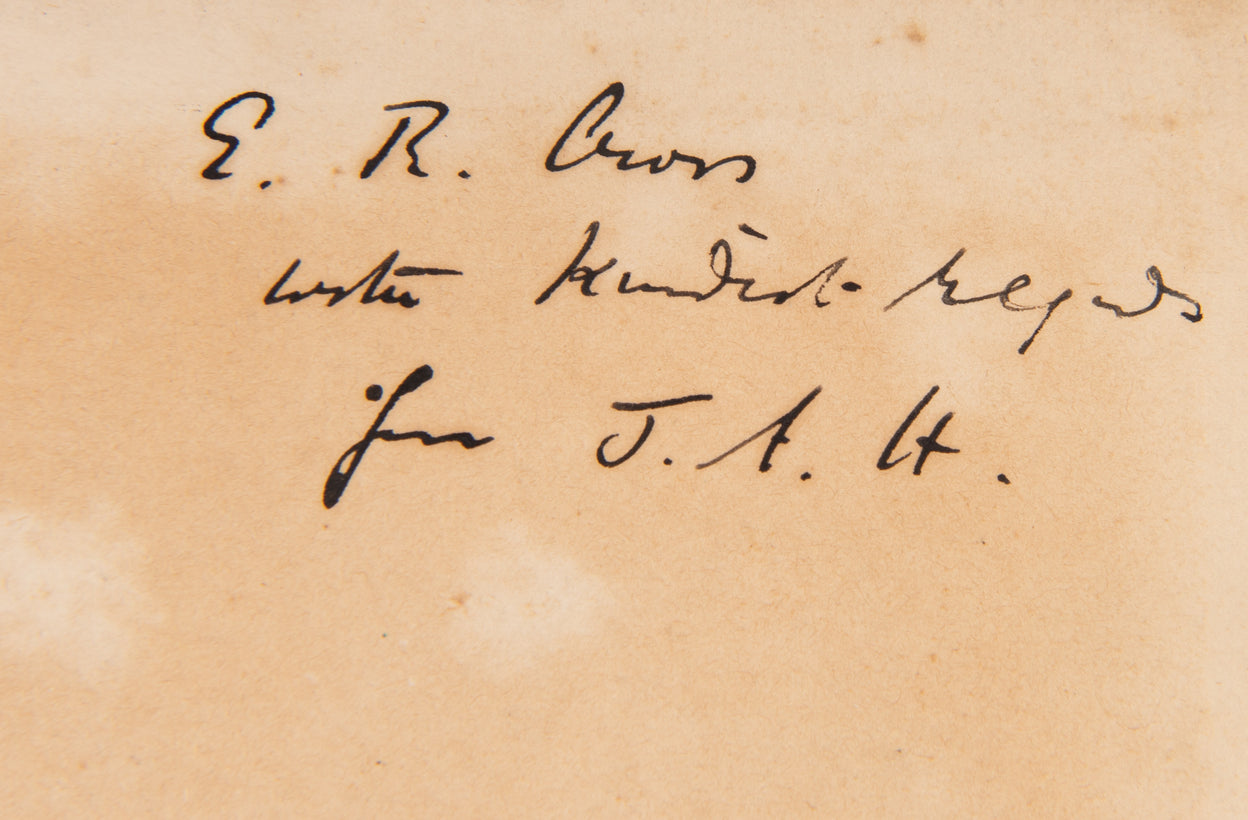 E. R. Cross
with kindest regards
from J. A. H.